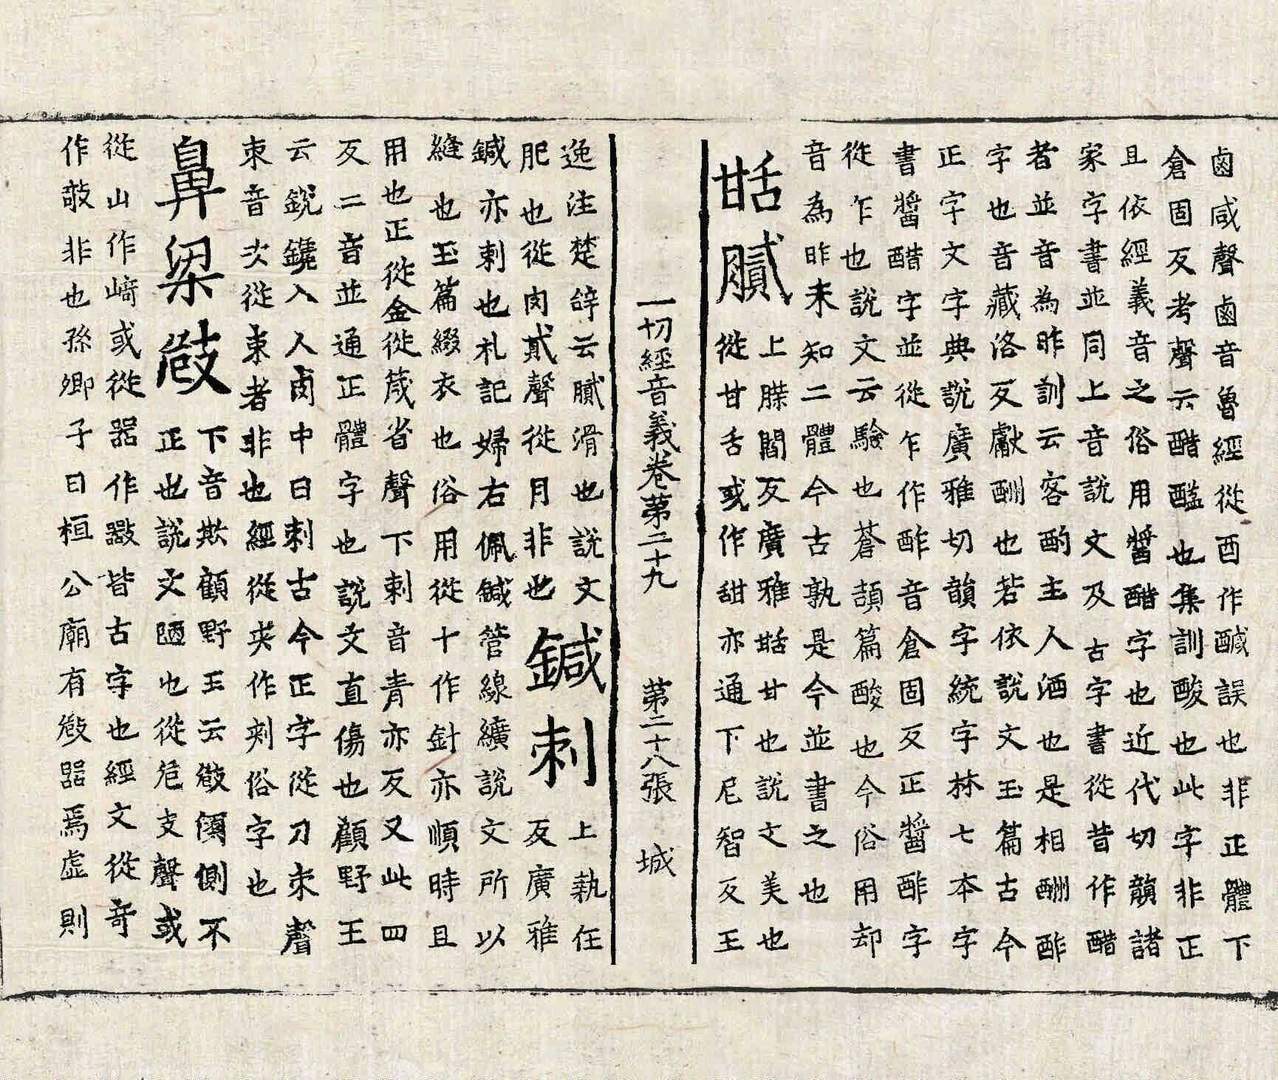 鹵咸聲鹵音魯經從酉作醎誤也非正體下
倉固反考聲云醋也集訓酸也此字非正
且依經義音之俗用醬醋字也近代切韻諸
家字書並同上音說文及古字書從昔作醋
者並音為昨訓云客酌主人酒也是相酬酢
字也音藏洛反獻酬也若依說文玉篇古今
正字文字典說廣雅切韻字統字林七本字
書醬醋字並從乍作酢音倉固反正醬酢字
從乍也說文云驗也蒼頡篇酸也今俗用却
音為昨未知二體今古孰是今並書之也
甛膩
上牒閻反廣雅甛甘也說文美也
從甘舌或作甜亦通下尼智反王
一切經音義卷第二十九 第二十八張 城
逸注楚辭云膩滑也說文
肥也從肉貳聲從月非也
鍼刺
上執任
反廣雅
鍼亦刺也礼記婦右佩鍼管線纊說文所以
縫也玉篇綴衣也俗用從十作針亦順時且
用也正從金從箴省聲下刺音青亦反又此四
反二音並通正體字也說文直傷也顧野王
云銳鑱入人肉中曰刺古今正字從刀朿聲
朿音次從束者非也經從夾作刾俗字也
鼻梁㩻
下音欺顧野王云㩻傾側不
正也說文陋也從危支聲或
從山作崎或從器作皆古字也經文從奇
作敧非也孫卿子曰桓公廟有㩻器焉虛則